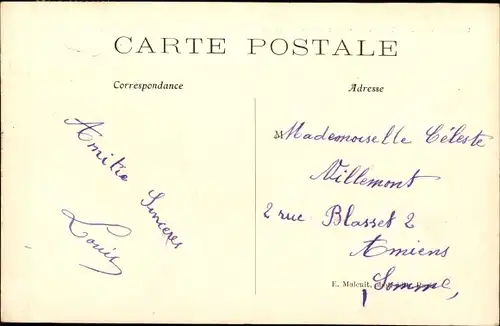 CARTE POSTALE
Correspondance
Adresse
Amitié
Sincères
Louis
Mademoiselle Céleste
Villemont
2 rue Blasset 2
Amiens
Somme,
E. Malcuit,